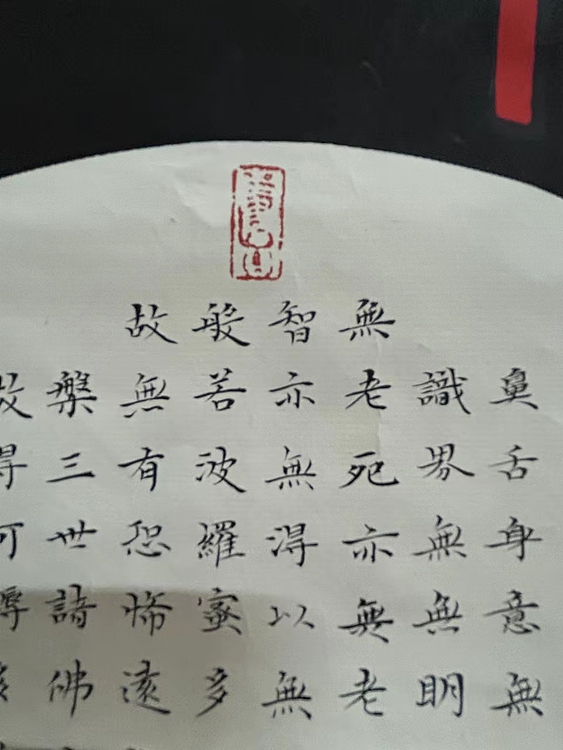 鼻舌身意無
識界無無明
無老死亦無老
智亦無得以無
般若波羅蜜多
故無有恐怖遠
槃三世諸佛